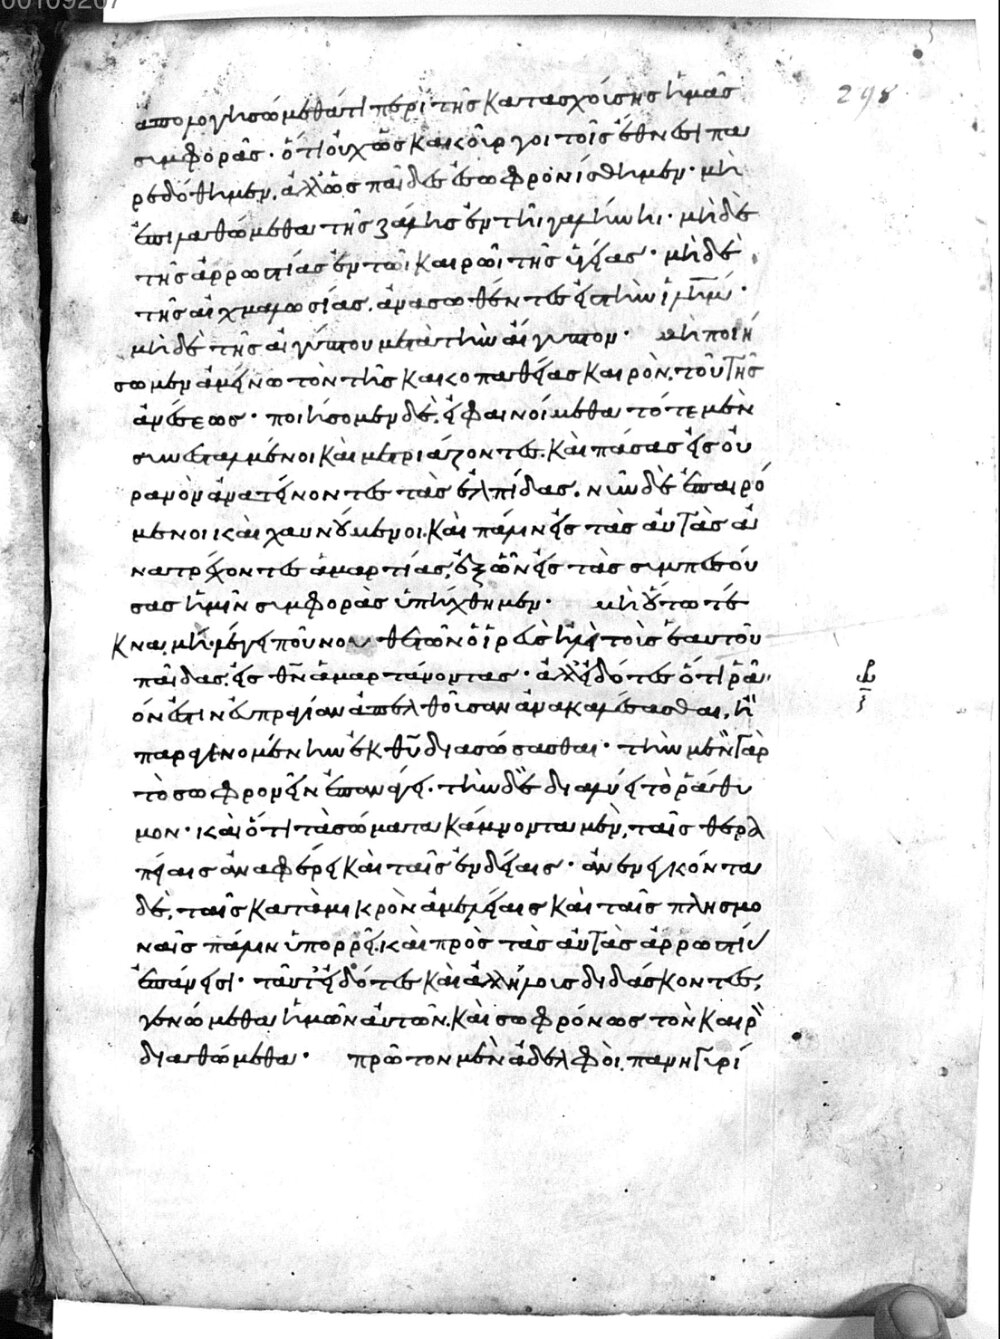 00109267
298
ἀπολογησώμεθά τι περὶ τῆς κατασχούσης ἡμᾶς
συμφορᾶς· ὅτι οὐχ ὡς κακοῦργοι τοῖς ἔθνεσι πα
ρεδόθημεν, ἀλλ' ὡς παῖδες ἐσωφρονίσθημεν· μὴ
ἐπιλαθώμεθα τῆς ζάλης ἐν τῆι γαλήνηι· μὴ δὲ
τῆς ἀρρωστίας ἐν τῶι καιρῶι τῆς ὑγείας· μὴ δὲ
τῆς αἰχμαλωσίας, ἀνασωθέντες εἰς τὴν ἱλὴμ·
μὴ δὲ τῆς αἰγύπτου μετὰ τὴν αἴγυπτον· μὴ ποιή
σωμεν ἀμείνω τὸν τῆς κακοπαθείας καιρὸν, τοῦ τῆς
ἀνέσεως· ποιήσομεν δὲ, εἰ φαινοίμεθα τότε μὲν
συνεσταλμένοι καὶ μετριάζοντες, καὶ πάσας εἰς οὐ
ρανὸν ἀνατείνοντες τὰς ἐλπίδας, νῦν δὲ ἐπαιρό
μενοι καὶ χαυνούμενοι, καὶ πάλιν εἰς τὰς αὐτὰς ἀ
νατρέχοντες ἁμαρτίας, ἐξ ὧν εἰς τὰς συμπεσού
σας ἡμῖν συμφορὰς ὑπήχθημεν· μὴ οὕτω τέ
κνα, μὴ· λέγει που
παῖδας, εἰς θν ἁμαρτάνοντας· ἀλλ' εἰδότες ὅτι ῥᾶι
όν ἐστιν εὐπραγίαν ἀπελθοῦσαν ἀνακαλέσασθαι, ἢ
παραγενομένην ἐκ θυ διασώσασθαι· τὴν μὲν γὰρ
τὸ σωφρονεῖν ἐπανάγει· τὴν δὲ διαλύει τὸ ῥάθυ
μον· καὶ ὅτι τὰ σώματα κάμνοντα μὲν, ταῖς θερα
πείαις ἀναφέρει καὶ ταῖς ἐνδείαις· ἀνενεγκόντα
δὲ, ταῖς κατὰ μικρὸν ἀμελείαις καὶ ταῖς πλησμο
ναῖς πάλιν ὑπορρεῖ, καὶ πρὸς τὰς αὐτὰς ἀρρωστίας
ἐπάνεισι· ταῦτ' εἰδότες καὶ ἀλλήλους διδάσκοντες,
γενώμεθα ἡμῶν αὐτῶν, καὶ σωφρόνως τὸν καιρὸν
διαθώμεθα· πρῶτον μὲν ἀδελφοὶ, πανηγυρί